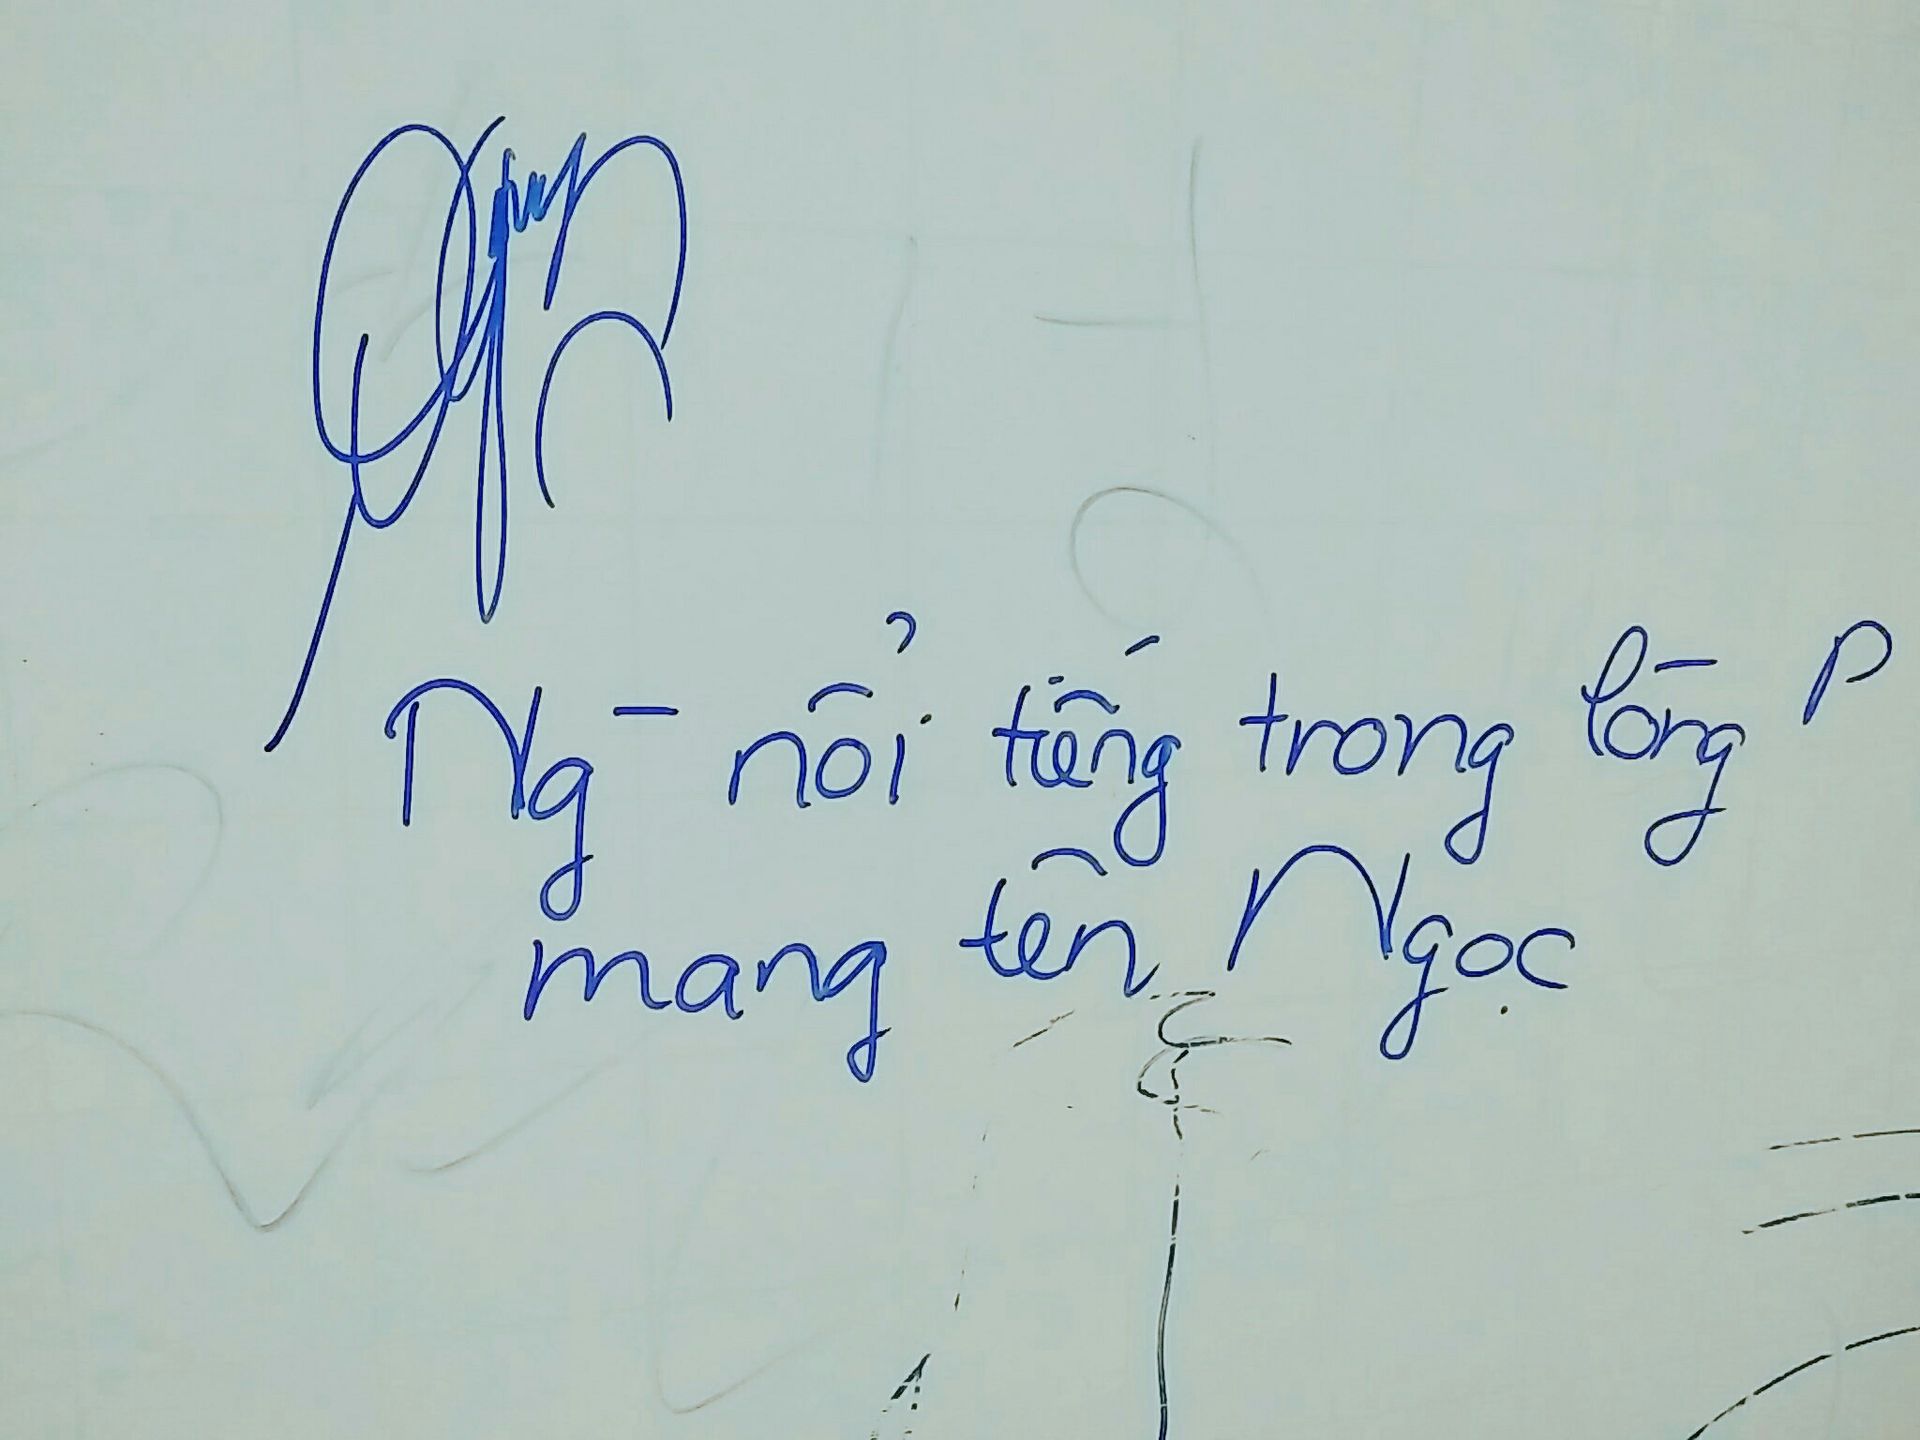 Ng- nổi tiếng trong lōng P
mang tên Ngọc